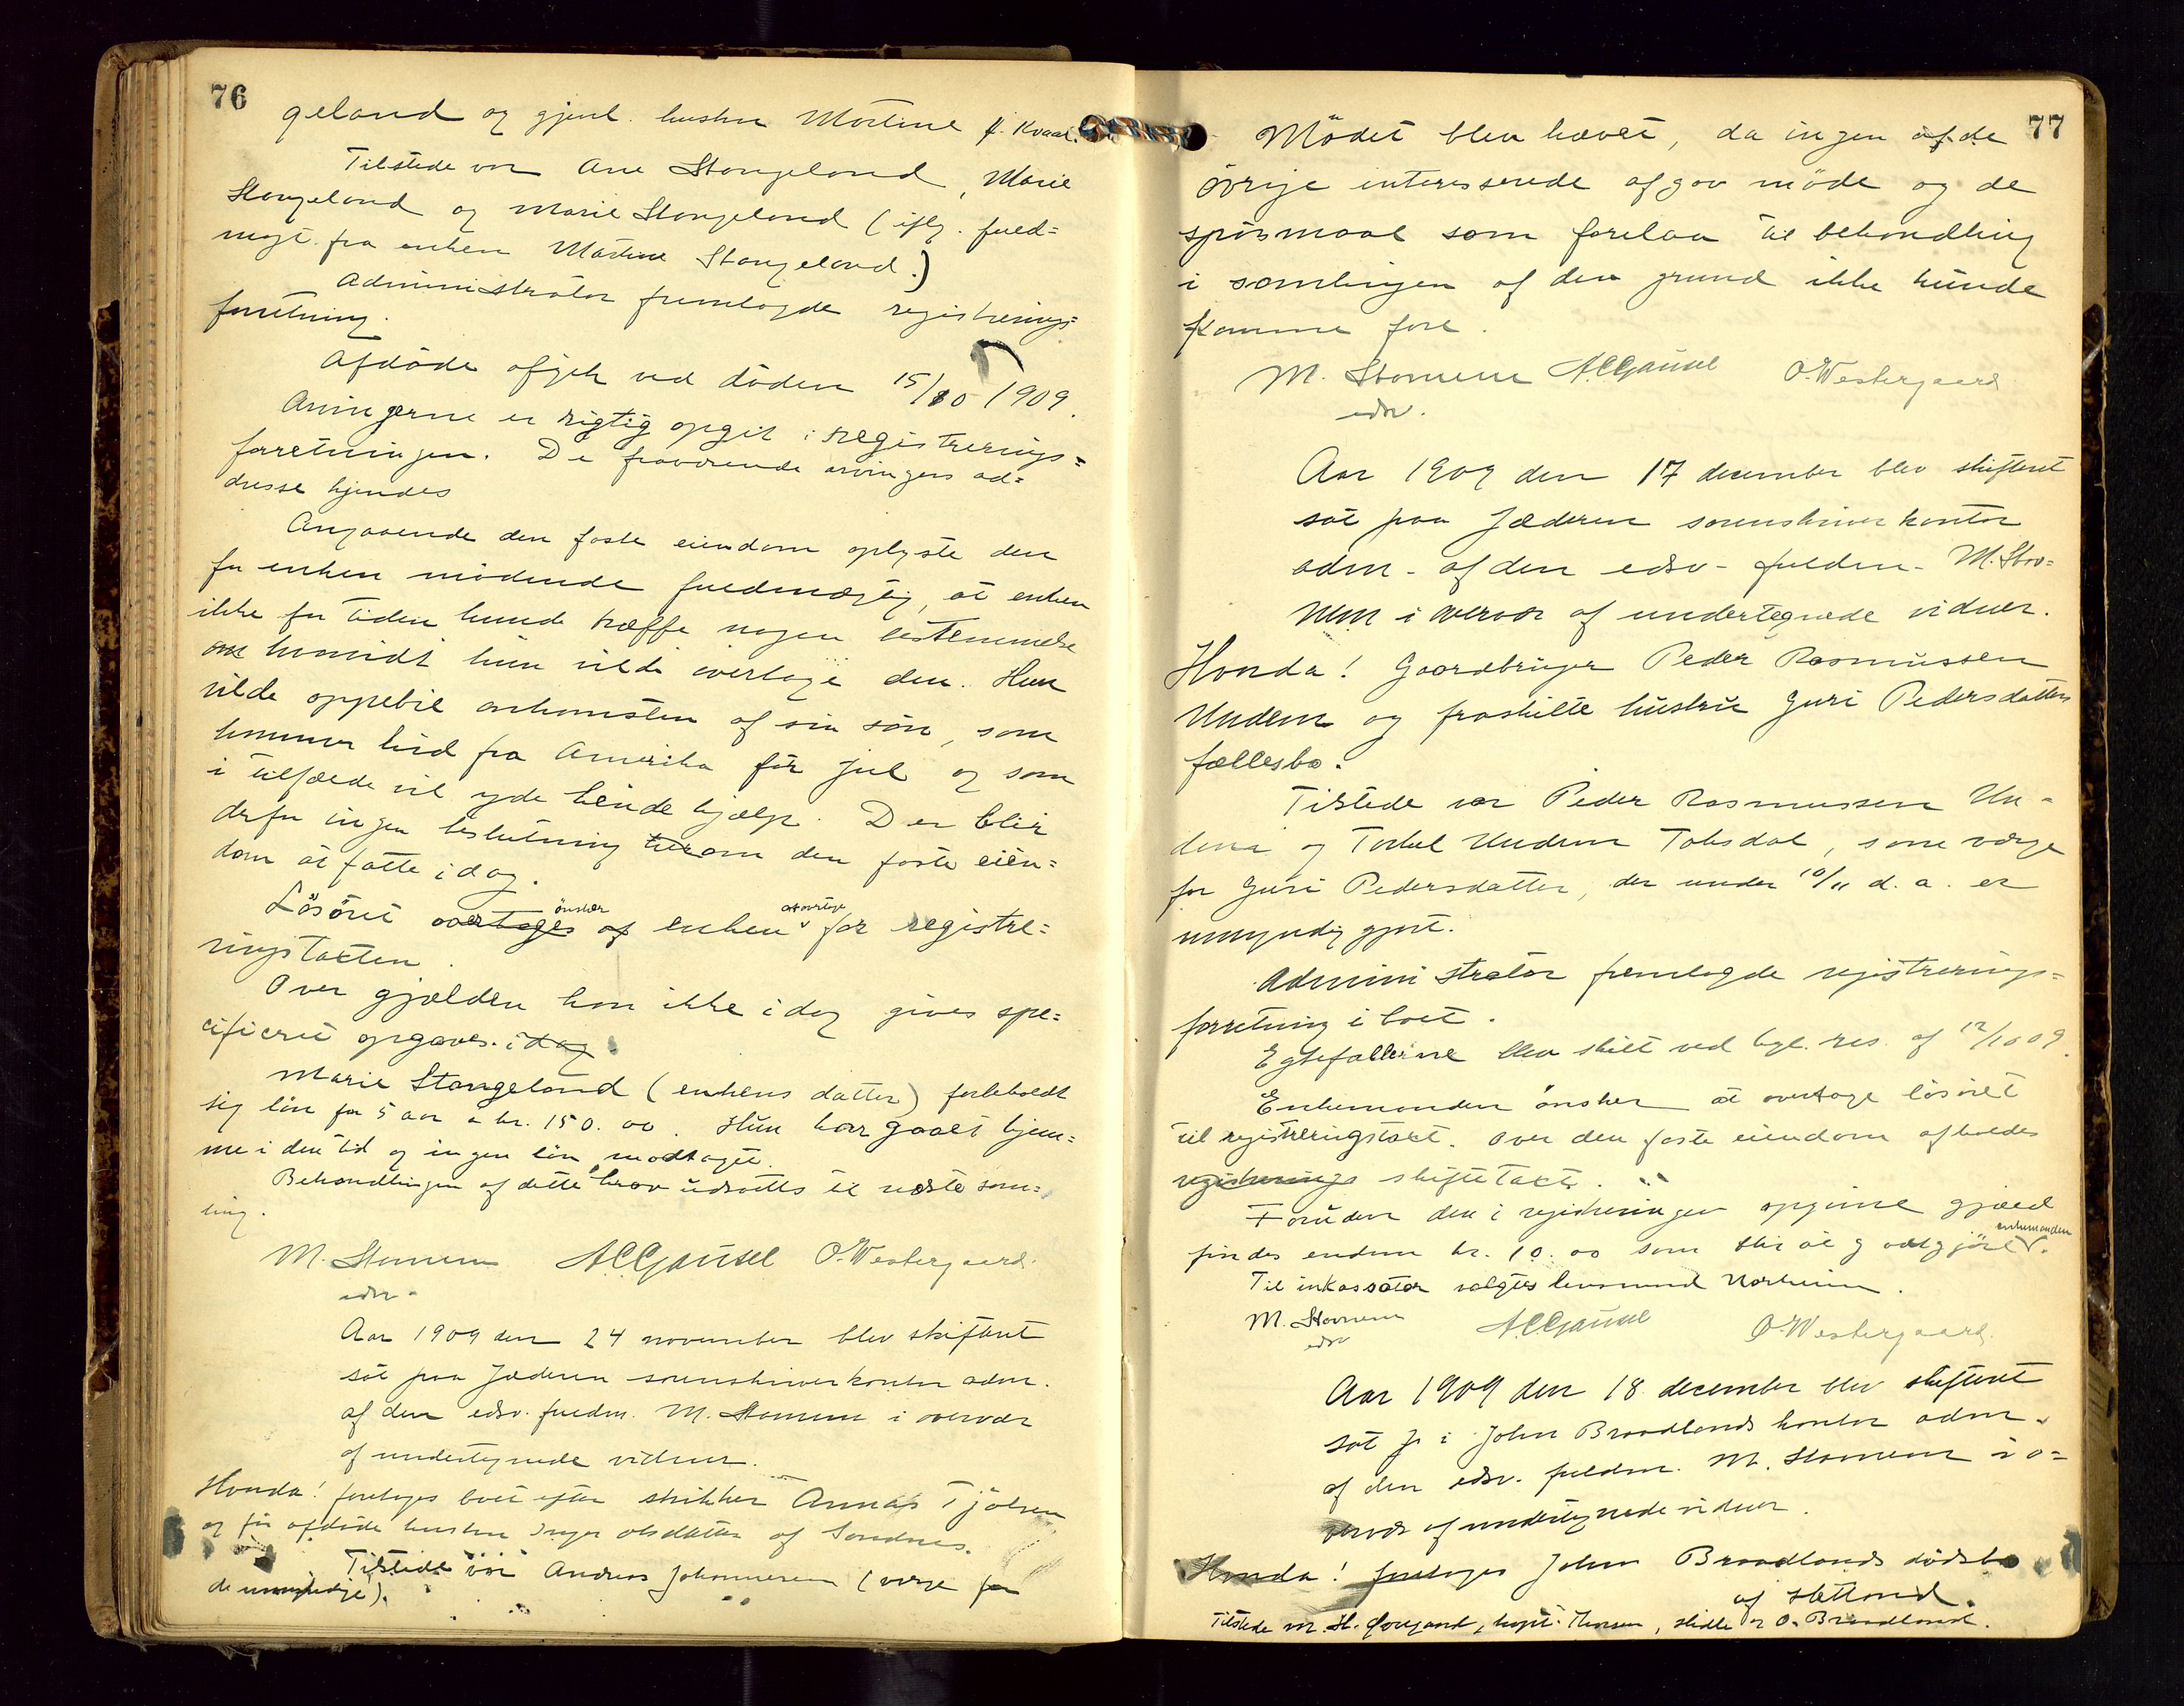 76
geland og gjenl. hustru Martine f. Kvaal.
Tilstede var Ane Stangeland, Marie
Stangeland og Marie Stangeland (iflg. fuld=
magt fra enken Martine Stangeland.)
Administrator fremlagde registrerings=
forretning.
Afdöde afgik ved döden 15/10 1909.
Arvingerne er rigtig opgit i registrerings=
forretningen. De fraværende arvingers ad=
dresse kjendes
Angaaende den faste eiendom oplyste den
for enken mödende fuldmægtig, at enken
ikke for tiden kunde træffe nogen bestemmelse
om hvorvidt hun vilde overtage den. Hun
vilde oppebie ankomsten af sin sön, som
kommer hid fra Amerika för jul og som
i tilfælde vil yde hende hjælp. Der blir
derfor ingen beslutning om den faste eien=
dom at fatte idag.
Lösöret overtages af önsker enken at overtage for registre=
ringstakten.
Over gjælden kan ikke idag gives spe=
cificeret opgave. idag
Marie Stangeland (enkens datter) forbeholdt
sig lön for 5 aar a kr. 150.00. Hun har gaaet hjem=
me i den tid og ingen lön modtaget.
Behandlingen af dette krav udsættes til næste sam=
ling.
M. Stornem A C Gausel O. Westergaard.
edsv.
Aar 1909 den 24 november blev skifteret
sat paa Jæderen sorenskriverkontor adm.
af den edsv. fuldm. M. Stornem i overvær
af undertegnede vidner.
Hvorda! foretoges boet efter snikker Annas Tjölsen
og för afdöde hustru Inger Olsdatter af Sandnes.
Tilstede var Andreas Johannesen (værge for
de umyndige).
77
Mödet blev hævet, da ingen af de
övrige interesserede afgav möde og de
spörsmaal som forelaa til behandling
i samlingen af den grund ikke kunde
komme fore.
M. Stornem A C Gausel O. Westergaard
edsv.
Aar 1909 den 17 december blev skifteret
sat paa Jæderen sorenskriverkontor
adm. af den edsv. fuldm. M. Stor=
nem i overvær af undertegnede vidner.
Hvorda! Gaardbruger Peder Rasmussen
Undem og fraskilte hustru Guri Pedersdatters
fællesbo.
Tilstede var Peder Rasmussen Un=
dem og Torkel Undem Taksdal, som værge
for Guri Pedersdatter, der under 10/11 d. a. er
umyndiggjort.
Administrator fremlagde registrerings=
forretning i boet.
Egtefællerne blev skilt ved kgl. res. af 12/10 09.
Enkemanden önsker at overtage lösöret
til registreringstakt. Over den faste eiendom afholdes
registrerings skiftetakt.
Foruden den i registreringen opgivne gjæld
findes endnu kr. 10.00 som blir at godtgjöre enkemanden.
Til inkassator valgtes lensmand Norheim.
M. Stornem A C Gausel O. Westergaard.
edsv
Aar 1909 den 18 december blev skifteret
sat i John Braadlands kontor adm.
af den edsv. fuldm. M. Stornem i o=
vervær af undertegnede vidner.
Hvorda! foretoges John Braadlands dödsbo
af Hetland.
Tilstede var H. , kapt. Thorsen, og O. Braadland.